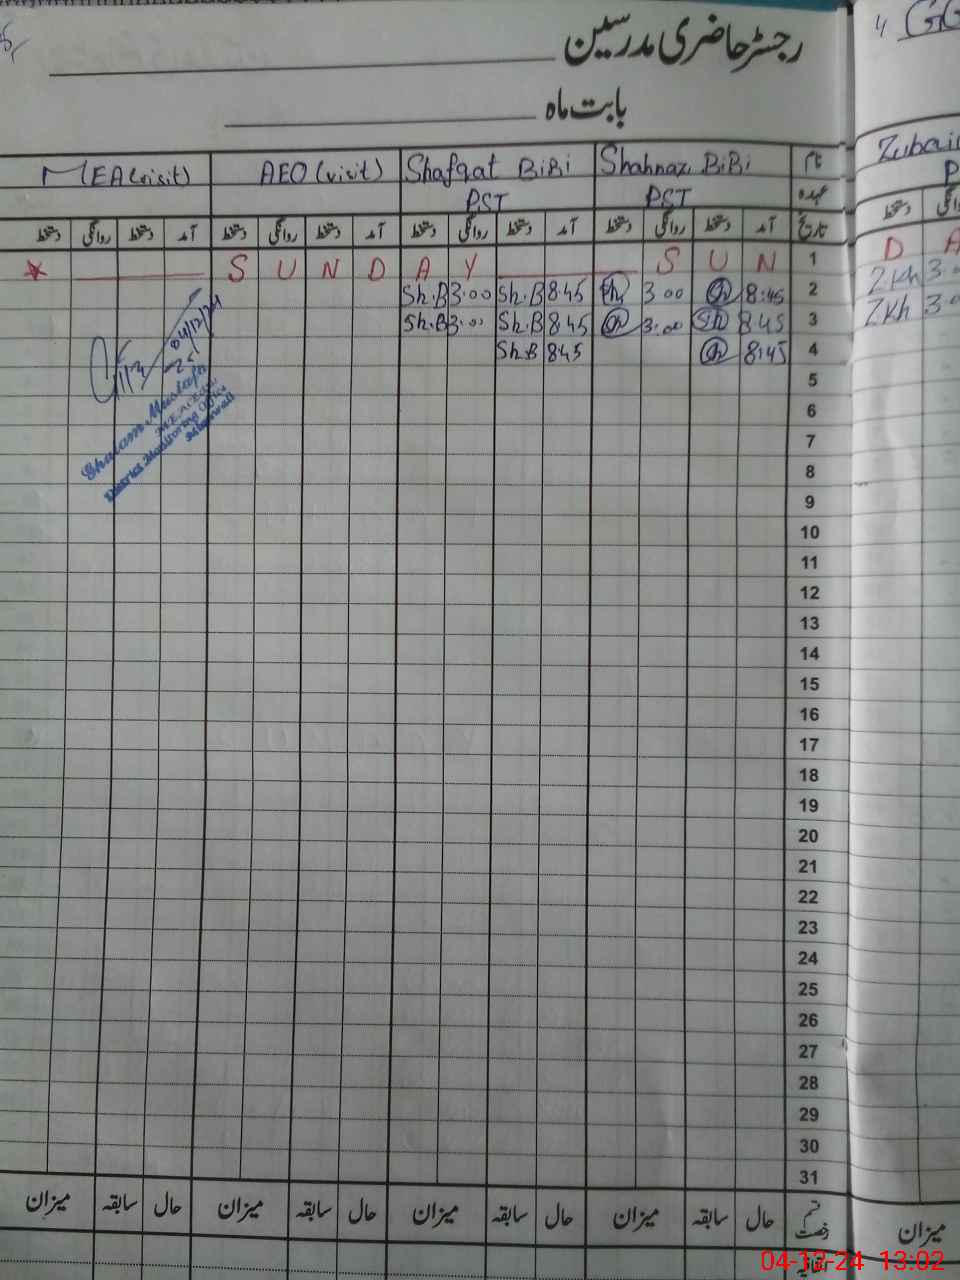 رجسٹر حاضری مدرسین
بابت ماہ
نام Shahnaz BiBi Shafqat BiBi AEO (visit) MEA (visit)
عہدہ PST PST
تاریخ آمد دستخط روانگی دستخط آمد دستخط روانگی دستخط آمد دستخط روانگی دستخط آمد دستخط روانگی دستخط
S U N D A Y S U N 1
Sh.B 3.00 Sh.B 8.45 3.00 8:45 2
Sh.B 3.00 Sh.B 8.45 3.00 Sh 8.45 3
Sh.B 8.45 8:45 4
5
6
7
8
9
10
11
12
13
14
15
16
17
18
19
20
21
22
23
24
25
26
27
28
29
30
31
04/12/24
Ghulam Mustafa
District Monitoring Office
قسم رخصت حال سابقہ میزان حال سابقہ میزان حال سابقہ میزان حال سابقہ میزان
GG
Zubai
دستخط
D A
Z.Kh 3.0
Z.Kh 3.0
میزان
04-12-24 13:02